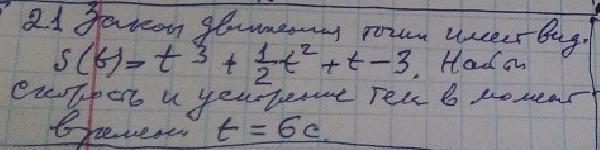 21 Закон движения точки имеет вид.
S(t) = t³ + 1/2 t² + t - 3. Найти
скорость и ускорение тела в момент
времени t = 6с.